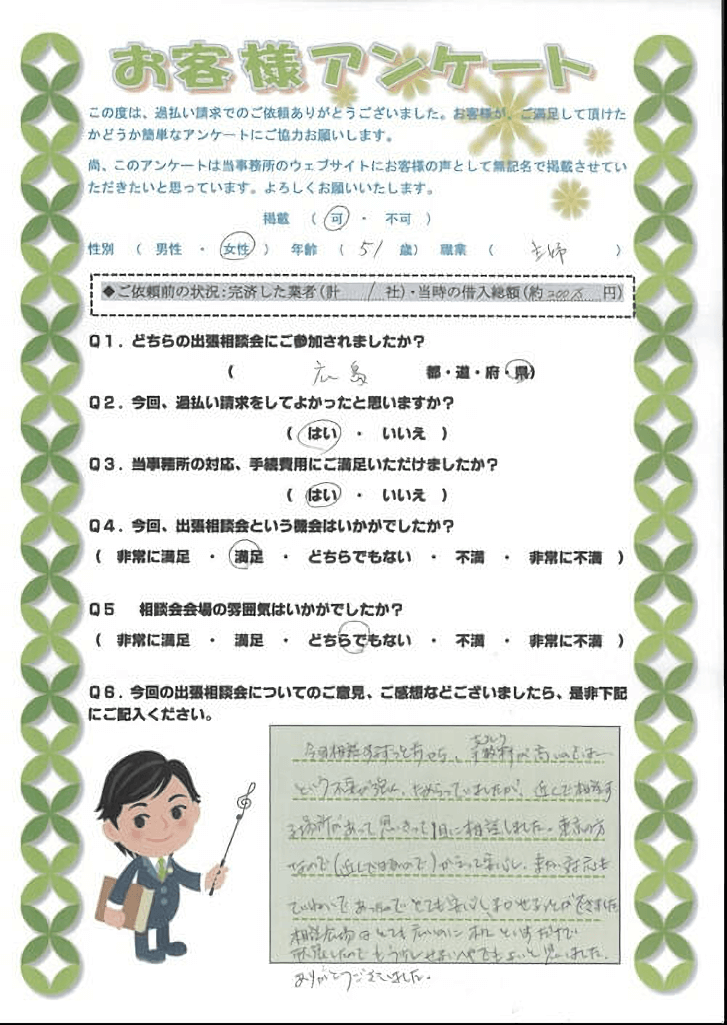 お客様アンケート
この度は、過払い請求でのご依頼ありがとうございました。お客様が、ご満足して頂けた
かどうか簡単なアンケートにご協力お願いします。
尚、このアンケートは当事務所のウェブサイトにお客様の声として無記名で掲載させてい
ただきたいと思っています。よろしくお願いいたします。
掲載 ( 可 ・ 不可 )
性別 ( 男性 ・ 女性 ) 年齢 ( 51 歳) 職業 ( 主婦 )
◆ご依頼前の状況：完済した業者(計 1 社)・当時の借入総額(約 200万 円)
Q1．どちらの出張相談会にご参加されましたか？
( 広島 都・道・府・県)
Q2．今回、過払い請求をしてよかったと思いますか？
( はい ・ いいえ )
Q3．当事務所の対応、手続費用にご満足いただけましたか？
( はい ・ いいえ )
Q4．今回、出張相談会という機会はいかがでしたか？
( 非常に満足 ・ 満足 ・ どちらでもない ・ 不満 ・ 非常に不満 )
Q5 相談会会場の雰囲気はいかがでしたか？
( 非常に満足 ・ 満足 ・ どちらでもない ・ 不満 ・ 非常に不満 )
Q6．今回の出張相談会についてのご意見、ご感想などございましたら、是非下記
にご記入ください。
今回相談するずっと前から、手数料が高いのでは
という不安が強く、ためらっていましたが、近くで相談す
る場所があって思いきって1日に相談しました。東京の方
なので(近くではないので)かえって安心し、また対応も
ていねいであったのでとても安心しまかせることができました
相談会場はとても広いのに机といすだけで
もう少しせまいへやでもよいと思いました。
ありがとうございました。